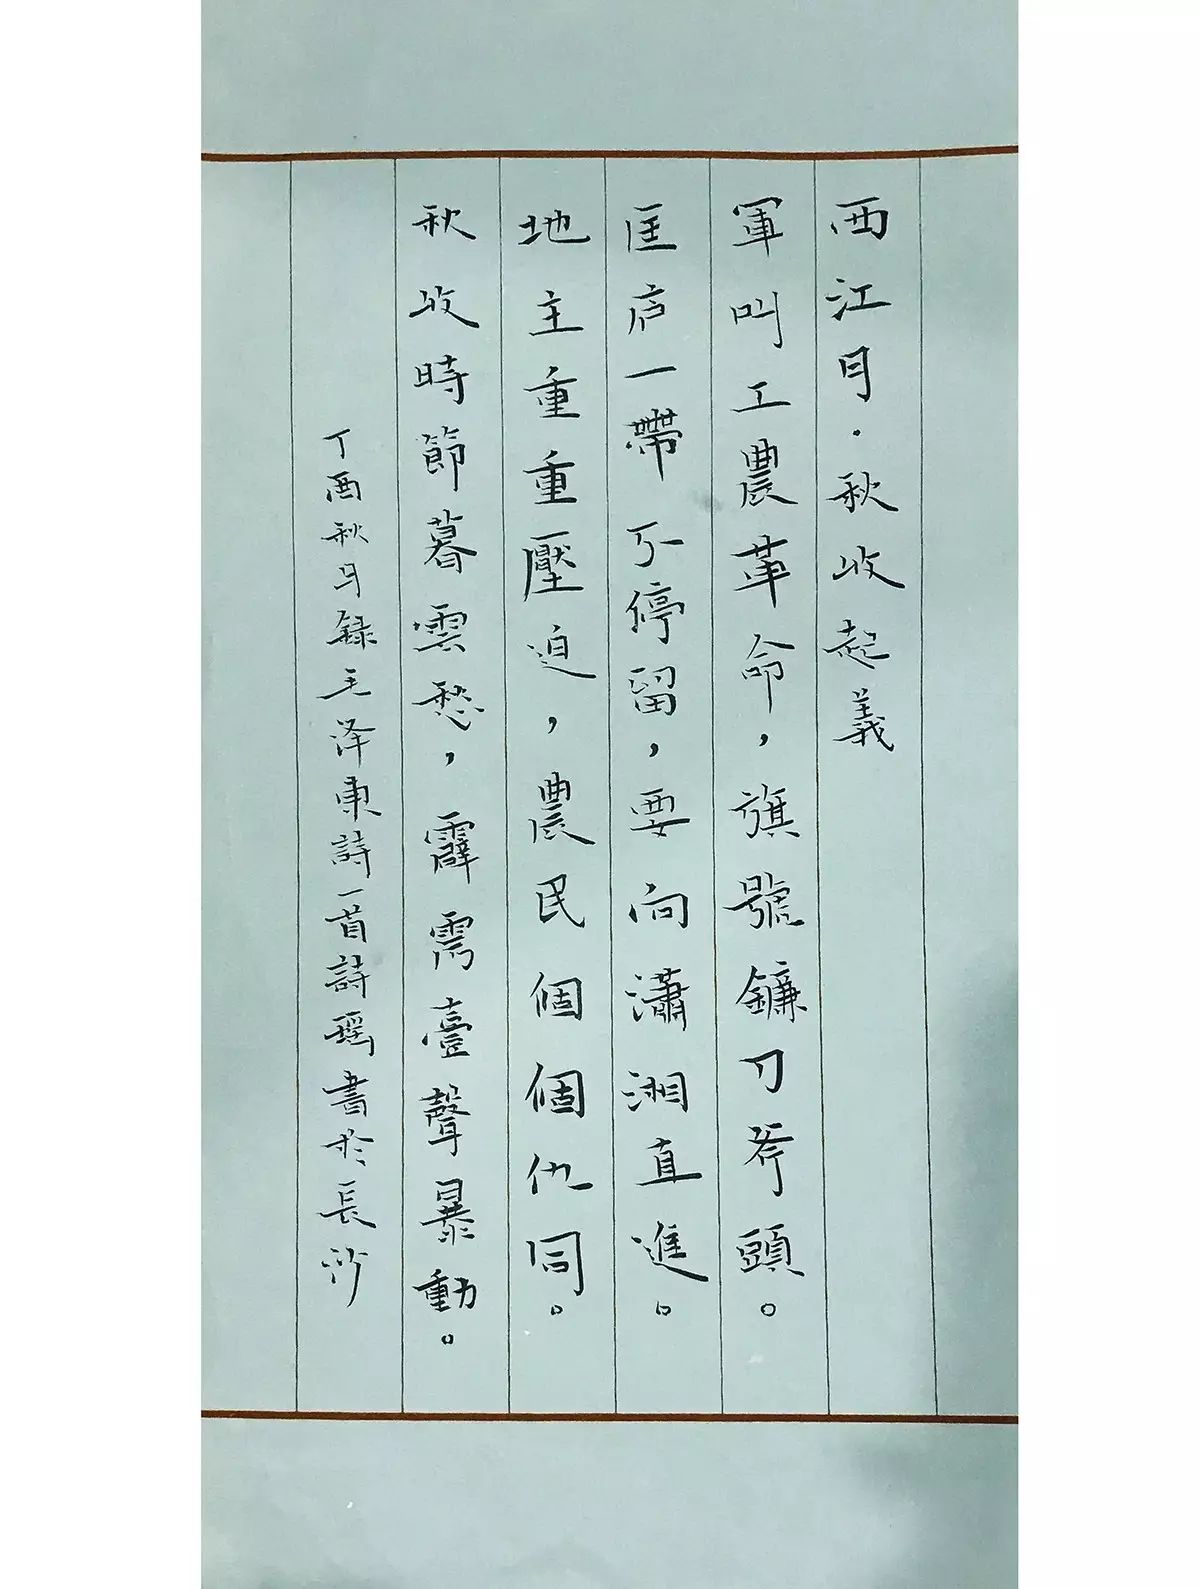 西江月·秋收起義
軍叫工農革命，旗號鐮刀斧頭。
匡庐一帶不停留，要向瀟湘直進。
地主重重壓迫，農民個個仇同。
秋收時節暮雲愁，霹雳壹聲暴動。
丁酉秋月録毛泽東詩一首詩瑶書於長沙